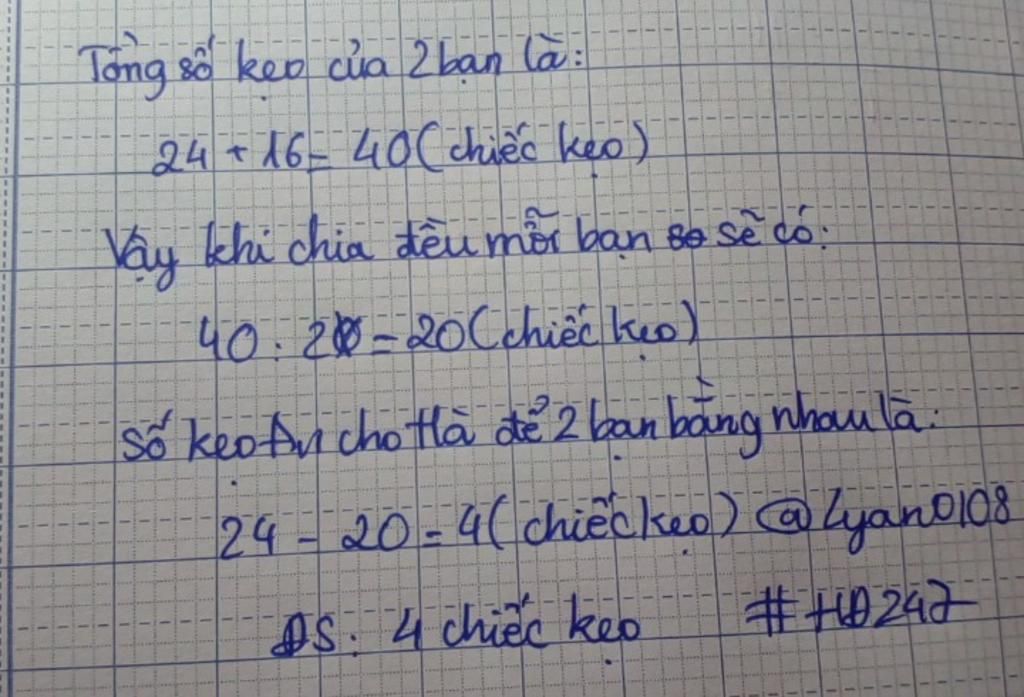 Tổng số kẹo của 2 bạn là:
24 + 16 = 40 (chiếc kẹo)
Vậy khi chia đều mỗi bạn sẽ có:
40 : 2 = 20 (chiếc kẹo)
Số kẹo An cho Hà để 2 bạn bằng nhau là:
24 - 20 = 4 (chiếc kẹo) @Lyan0108
ĐS: 4 chiếc kẹo #HĐ247